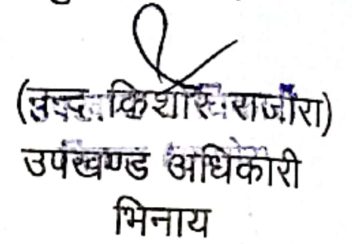 (नन्द किशोर राजौरा)
उपखण्ड अधिकारी
भिनाय